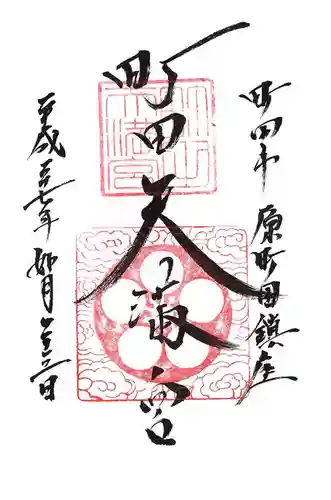 町田市 原町田鎮座
町田天満宮
平成二十七年 如月